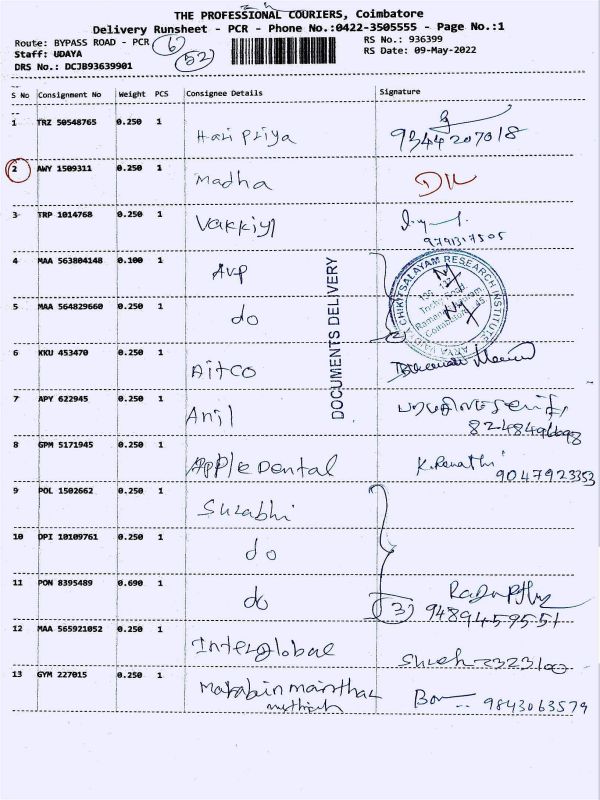 THE PROFESSIONAL COURIERS, Coimbatore
Delivery Runsheet - PCR - Phone No.:0422-3505555 - Page No.:1
Route: BYPASS ROAD - PCR 6
Staff: UDAYA 52
DRS No.: DCJB93639901
RS No.: 936399
RS Date: 09-May-2022
S No Consignment No Weight PCS Consignee Details Signature
1 TRZ 50548765 0.250 1 Hari Priya 9344207018
2 AWY 1509311 0.250 1 Madha
3 TRP 1014768 0.250 1 Vakkiyl 9791317505
4 MAA 563804148 0.100 1 AVP
5 MAA 564829660 0.250 1 do
DOCUMENTS DELIVERY
CHIKITSALAYAM RESEARCH INSTITUTE
Trichy Road
Ramanathapuram
Coimbatore
6 KKU 453470 0.250 1 Aitco
7 APY 622945 0.250 1 Anil
8 GPM 5171945 0.250 1 Apple Dental K. Revathi 9047923353
9 POL 1502662 0.250 1 Surabhi
10 DPI 10109761 0.250 1 do
11 PON 8395489 0.690 1 do 3 9489459551
12 MAA 565921052 0.250 1 Interglobal Suresh 2323100
13 GYM 227015 0.250 1 9843063579